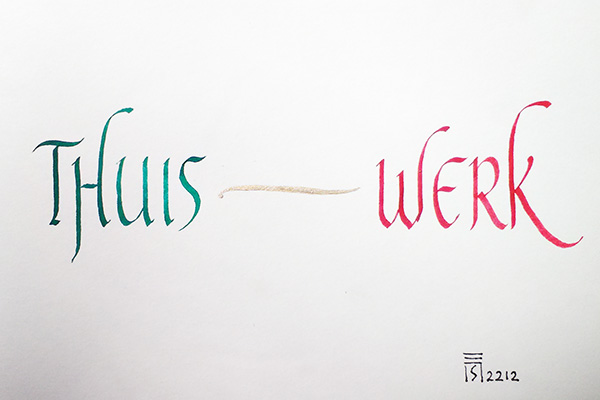 THUIS — WERK
2212